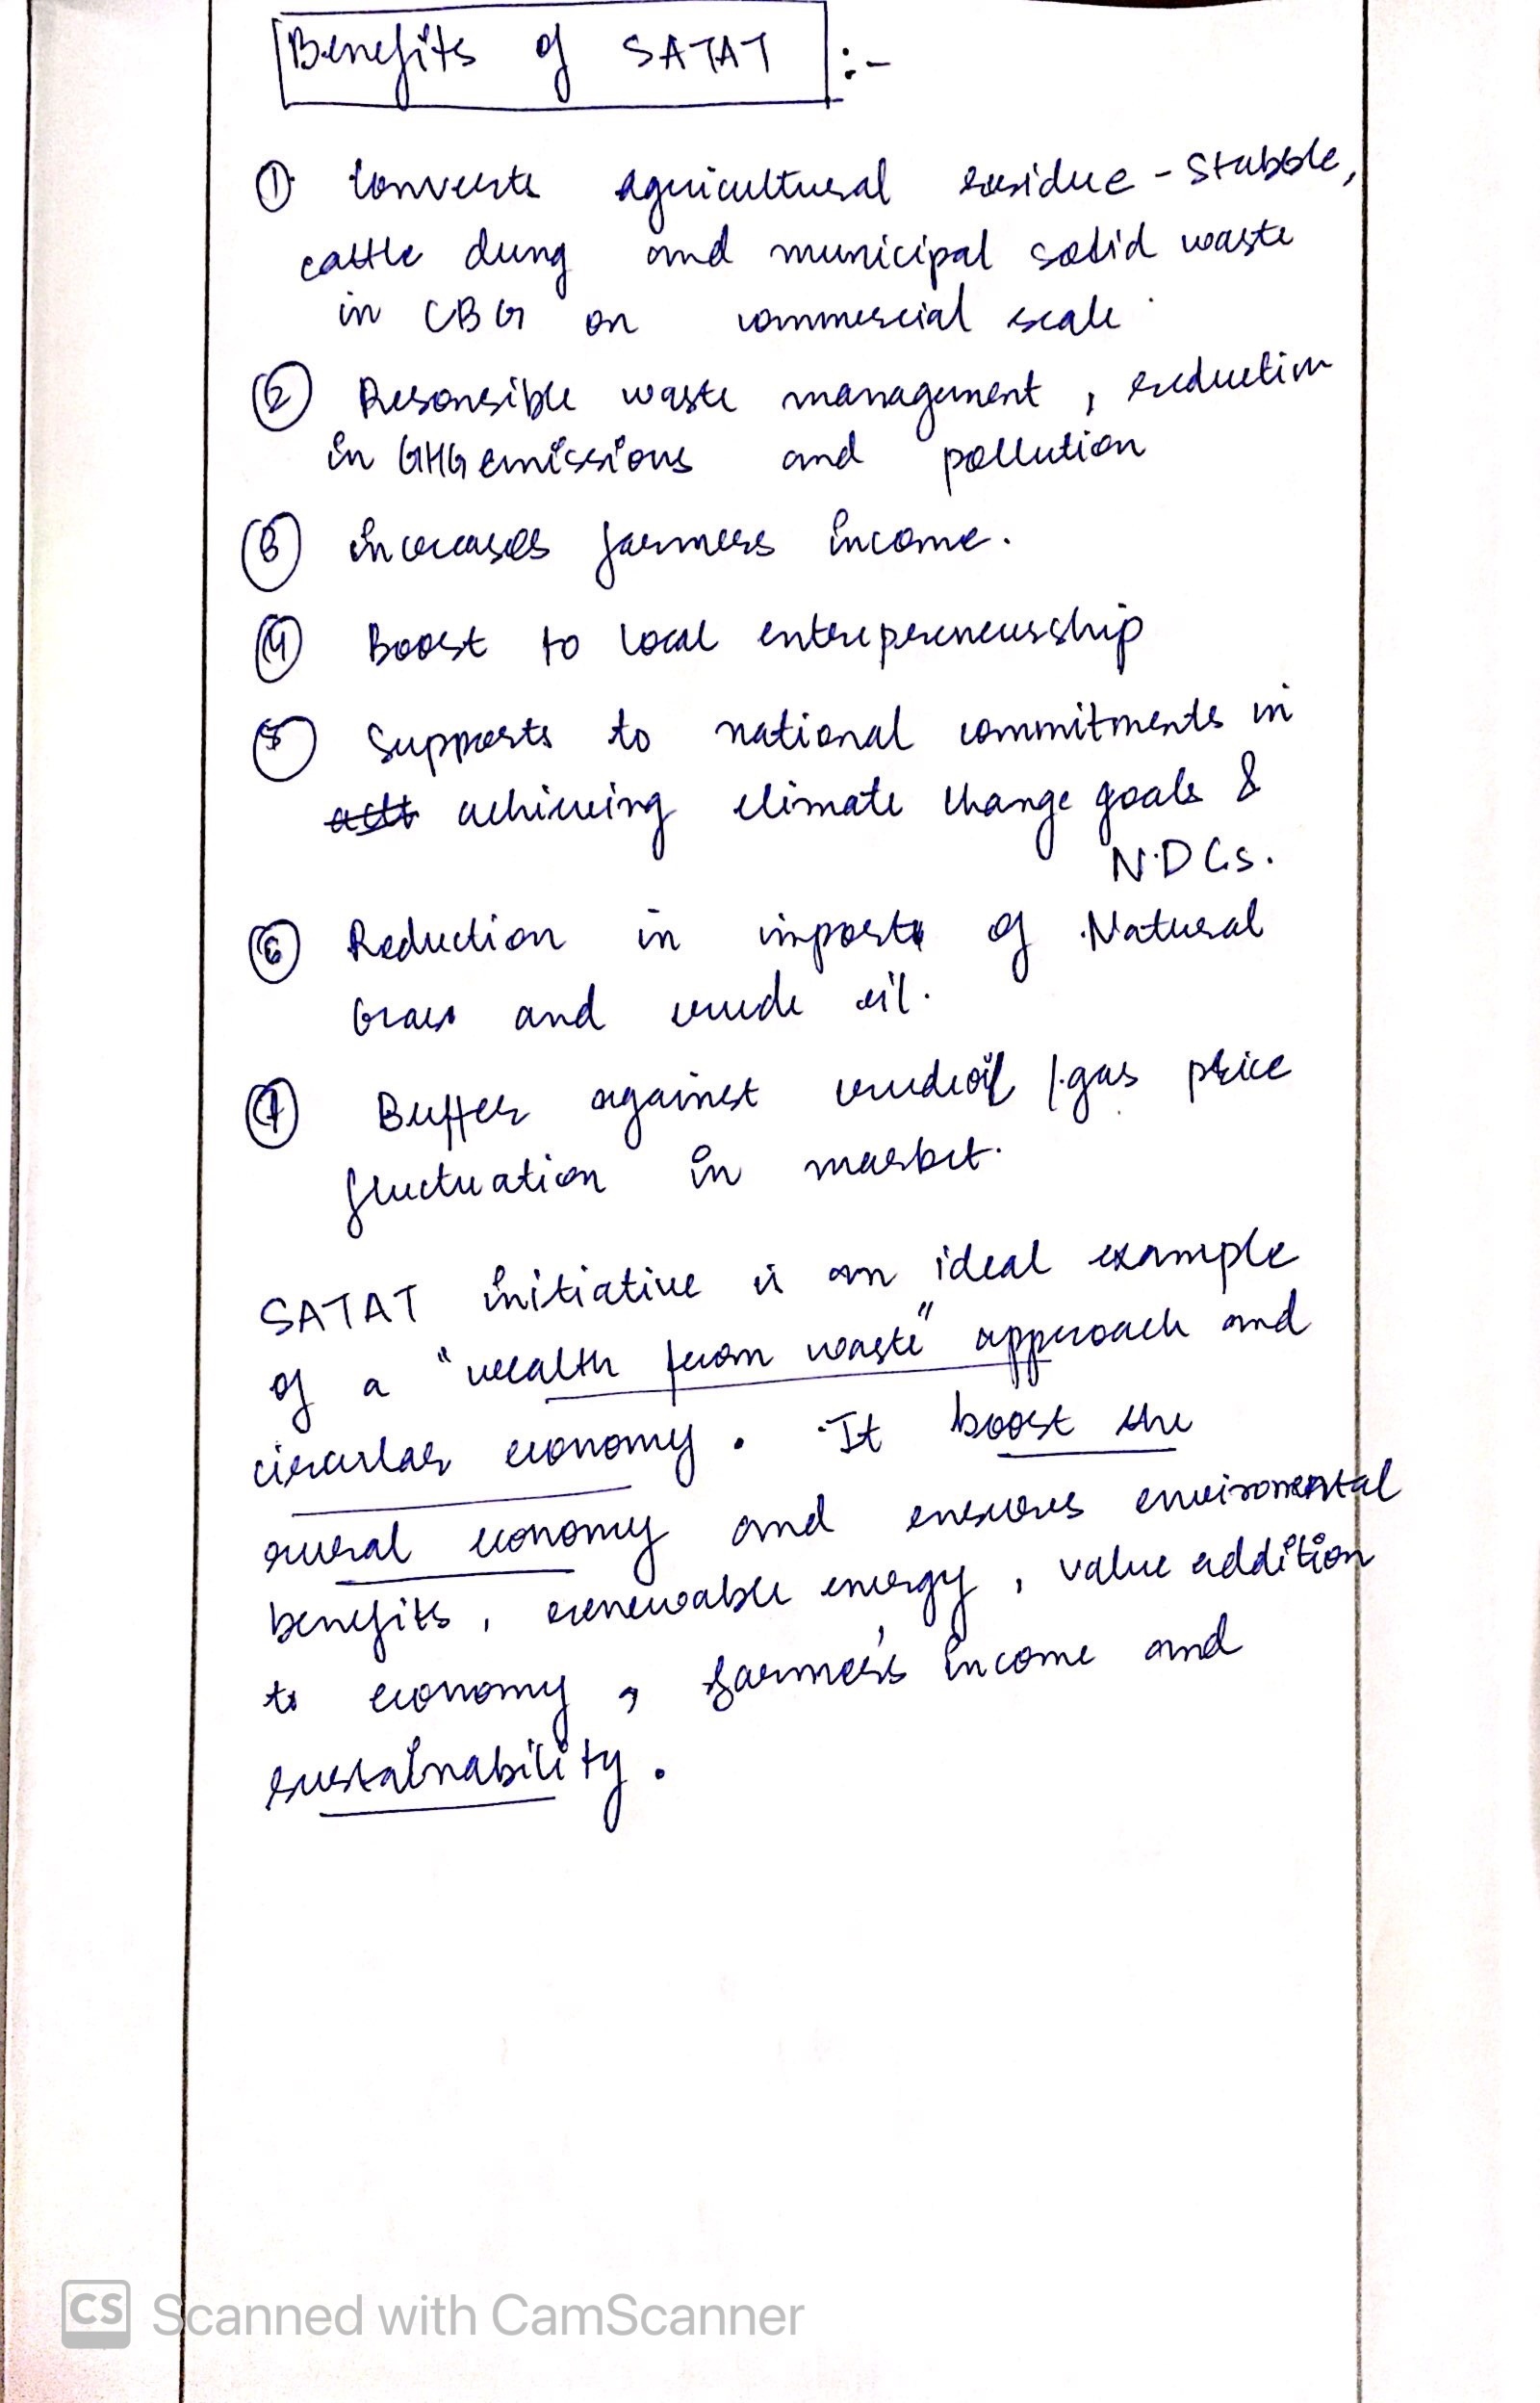 Benefits of SATAT :-
① Converts agricultural residue - Stubble,
cattle dung and municipal solid waste
in CBG on commercial scale
② Resonsible waste management, reduction
in GHG emissions and pollution
③ increases farmers income.
④ Boost to local enterepreneurship
⑤ Supports to national commitments in
achieving climate change goals &
N.DCs.
⑥ Reduction in import of Natural
Gas and crude oil.
⑦ Buffer against crudeoil / gas price
fluctuation in market.
SATAT initiative is an ideal example
of a "wealth from waste" approach and
circular economy. It boost the
rural economy and ensures enviromental
benefits, renewable energy, value addition
to economy, farmer's income and
sustainability.
CS Scanned with CamScanner